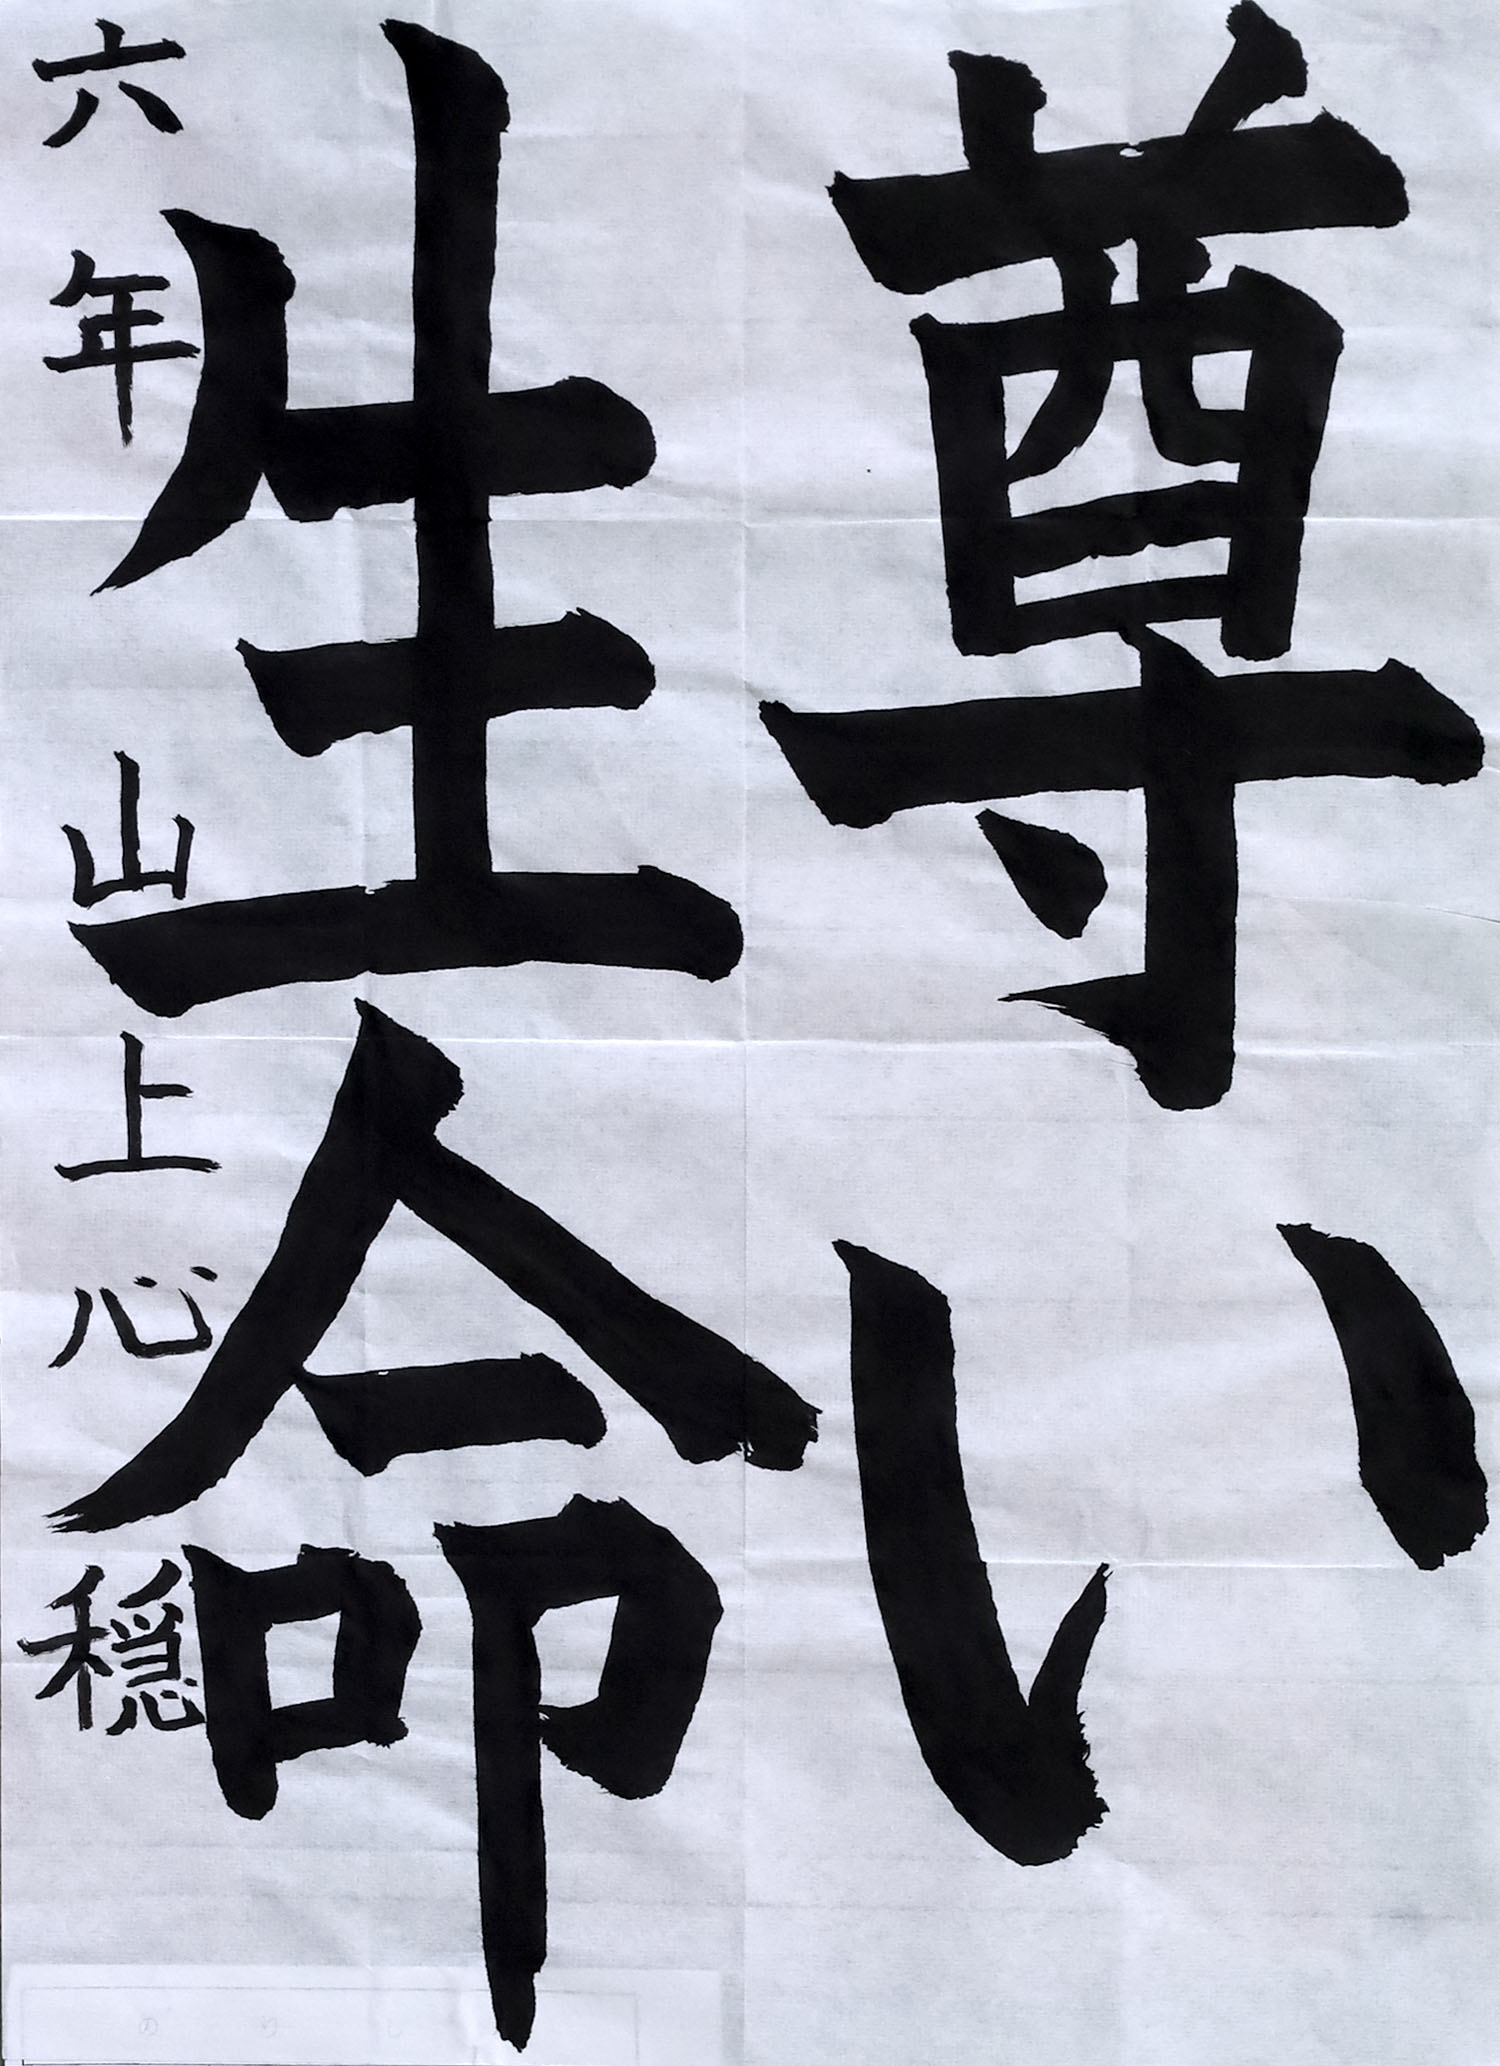 尊い
生命
六年 山上心穏